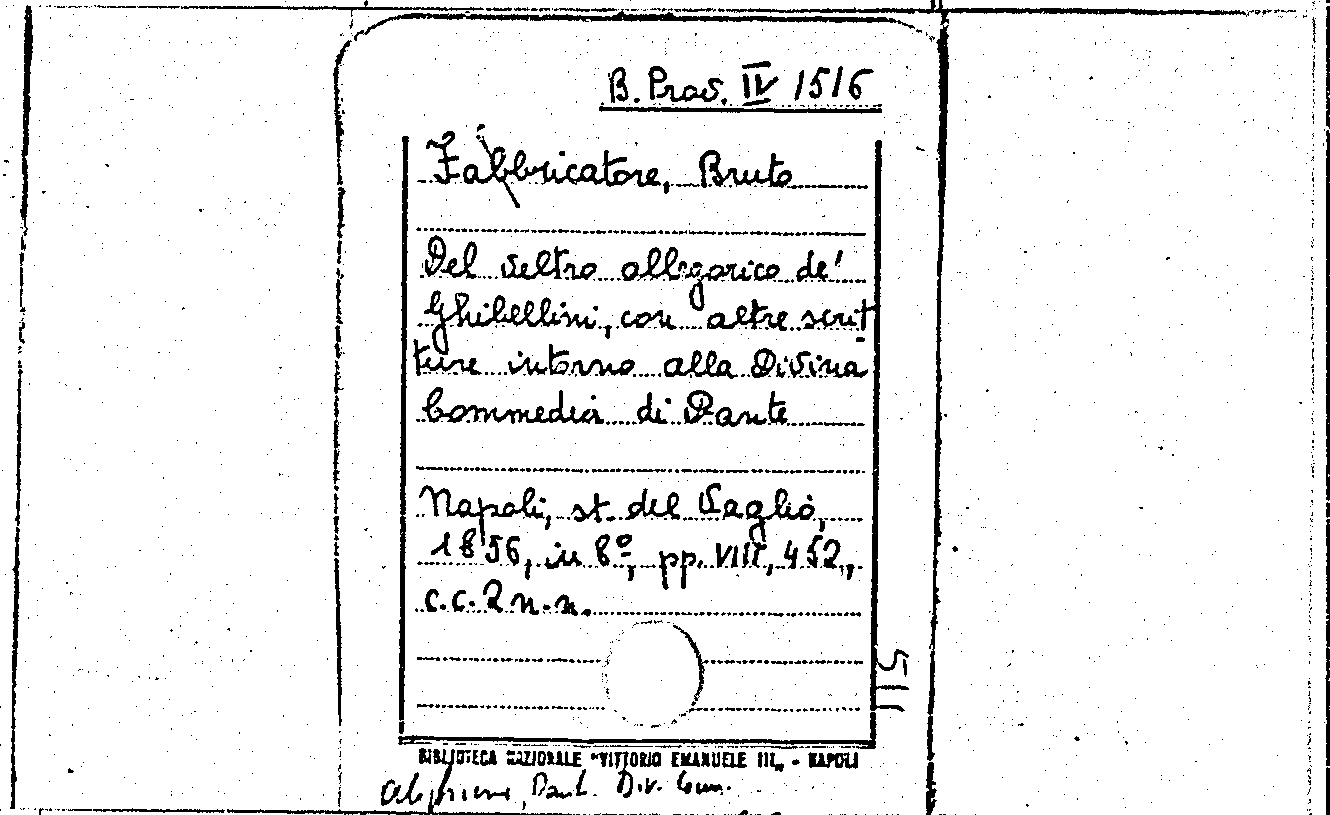 B. Prov. IV 1516
Fabbricatore, Bruto
Del veltro allegorico de'
Ghibellini, con altre scrit
ture intorno alla Divina
Commedia di Dante
Napoli, st. del Vaglio,
1856, in 8º, pp. VIII, 452,
c.c. 2 n.n.
511
BIBLIOTECA NAZIONALE "VITTORIO EMANUELE III" - NAPOLI
Dant. Div. Com.